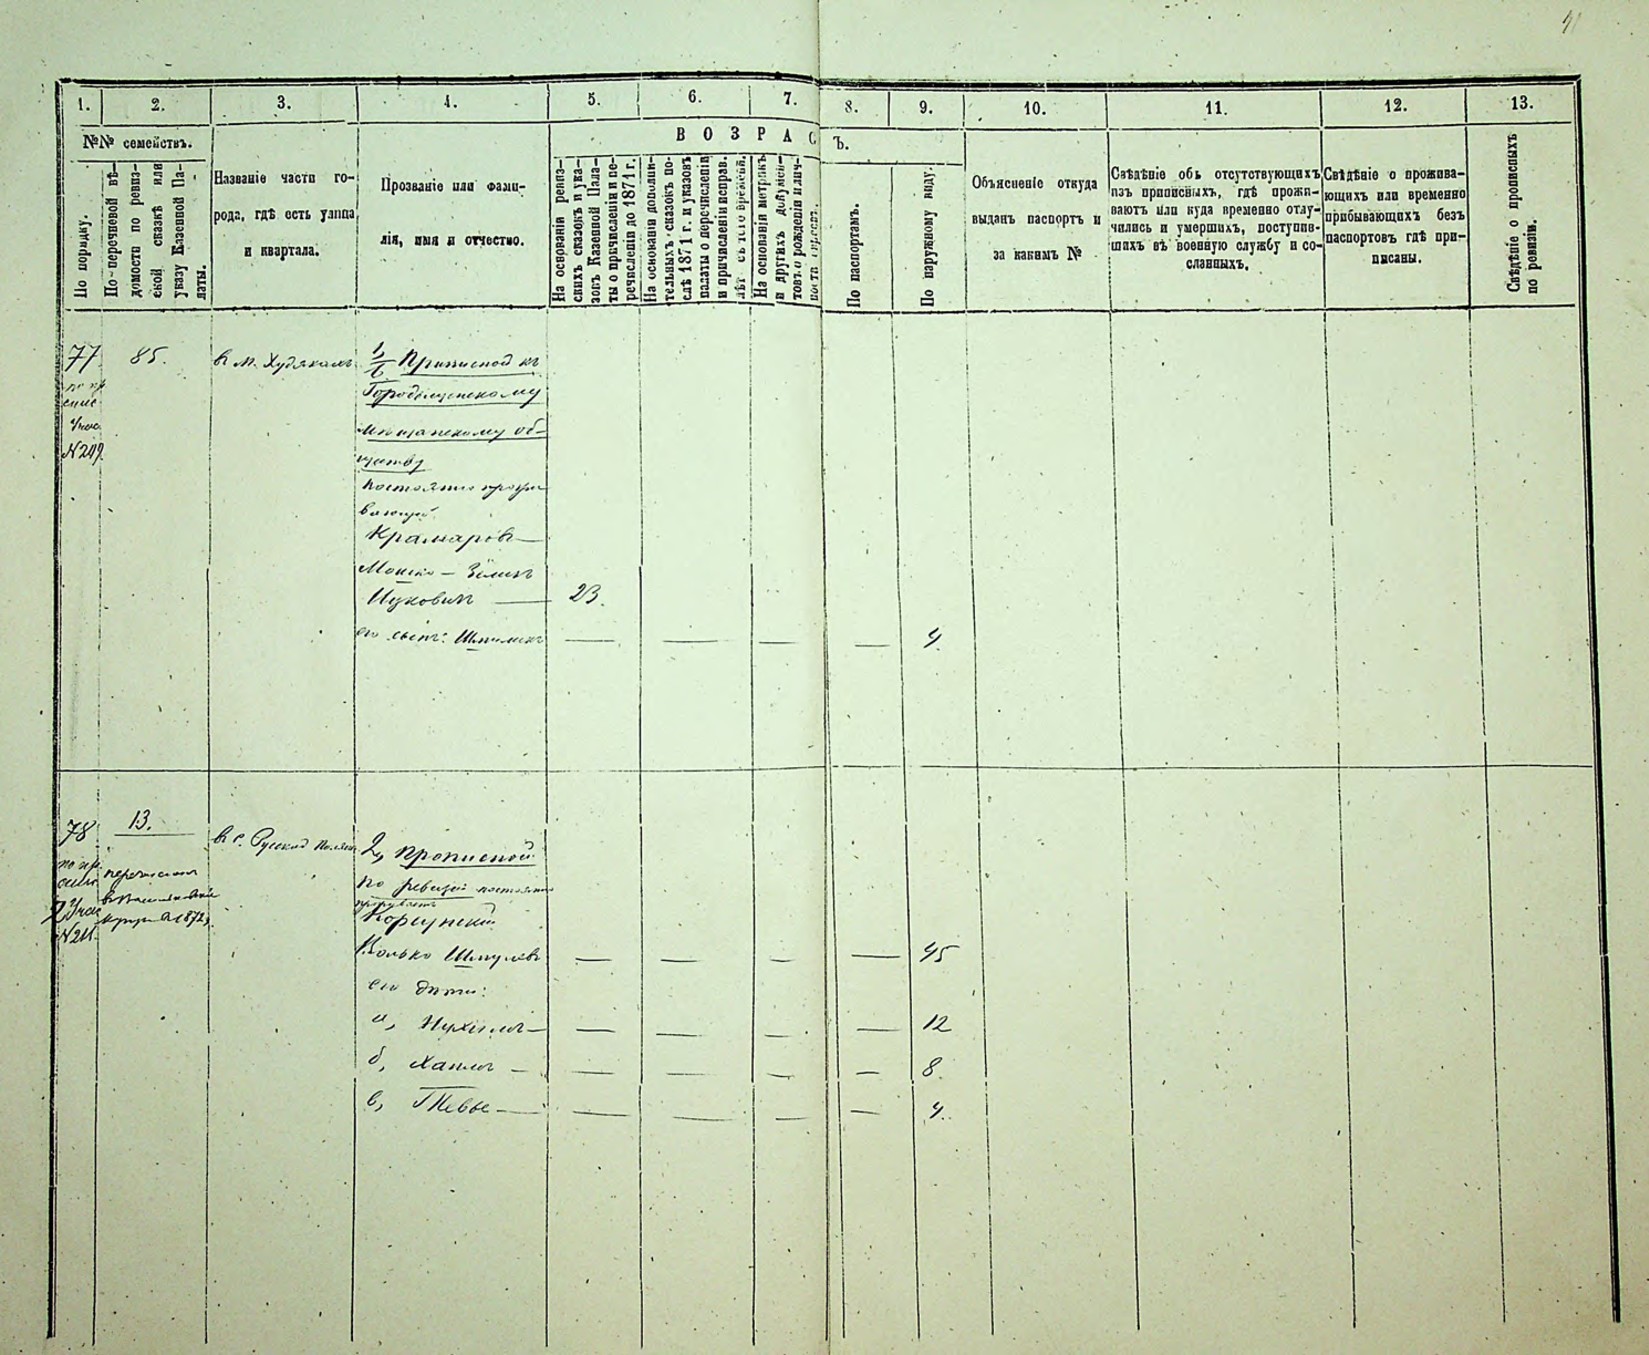 1.
2.
3.
4.
5.
6.
7.
8.
9.
10.
11.
12.
13.
№№ семействъ.
ВОЗРАС
Ъ.
По порядку.
По перечневой вѣ-
домости по ревиз-
ской сказкѣ или
указу Казенной Па-
латы.
Названіе части го-
рода, гдѣ есть улица
и квартала.
Прозваніе или фами-
лія, имя и отчество.
На основаніи ревиз-
скихъ сказокъ и ука-
зовъ Казенной Пала-
ты о причисленіи и пе-
речисленіи до 1871 г.
На основаніи дополни-
тельныхъ сказокъ по-
слѣ 1871 г. и указовъ
палаты о перечисленіи
и причисленіи исправ.
На основаніи метрикъ
и другихъ докумен-
товъ о рожденіи и лич-
По паспортамъ.
По наружному виду.
Объясненіе откуда
выданъ паспортъ и
за какимъ №
Свѣдѣніе объ отсутствующихъ
изъ приписныхъ, гдѣ прожи-
ваютъ или куда временно отлу-
чились и умершихъ, поступив-
шихъ въ военную службу и со-
сланныхъ.
Свѣдѣніе о прожива-
ющихъ или временно
прибывающихъ безъ
паспортовъ гдѣ при-
писаны.
Свѣдѣніе о прописныхъ
по ревизіи.
77 85. в м. Худякахъ Приписной къ
Городищенскому
Мѣщанскому об-
ществу
постоянно прожи
вающій
Крамаровъ
Мошко - Зелигъ
Ицковичъ 23.
его сынъ: 4.
78 13. в с. Русской Полянѣ 2, прописной
по ревизіи постоянно
проживаетъ
Корсунскій
Волько Шмулевъ 45
его дѣти:
а, 12
б, 8.
в, Тевье 4.